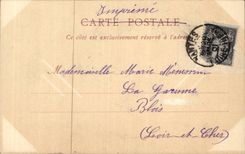 Imprimé
CARTE POSTALE
Ce côté est exclusivement réservé à l'adresse
Mademoiselle Marie
La Garenne
Blois
(Loir et Cher)